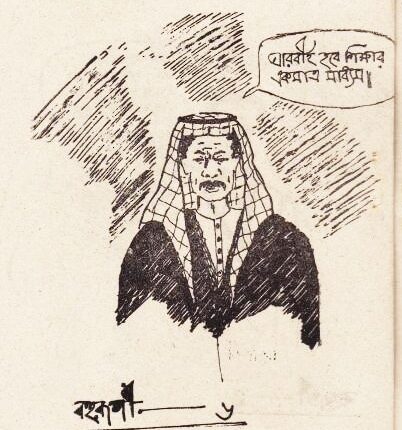 আরবীই হবে শিক্ষার
একমাত্র মাধ্যম॥
বহুরূপী — ৬